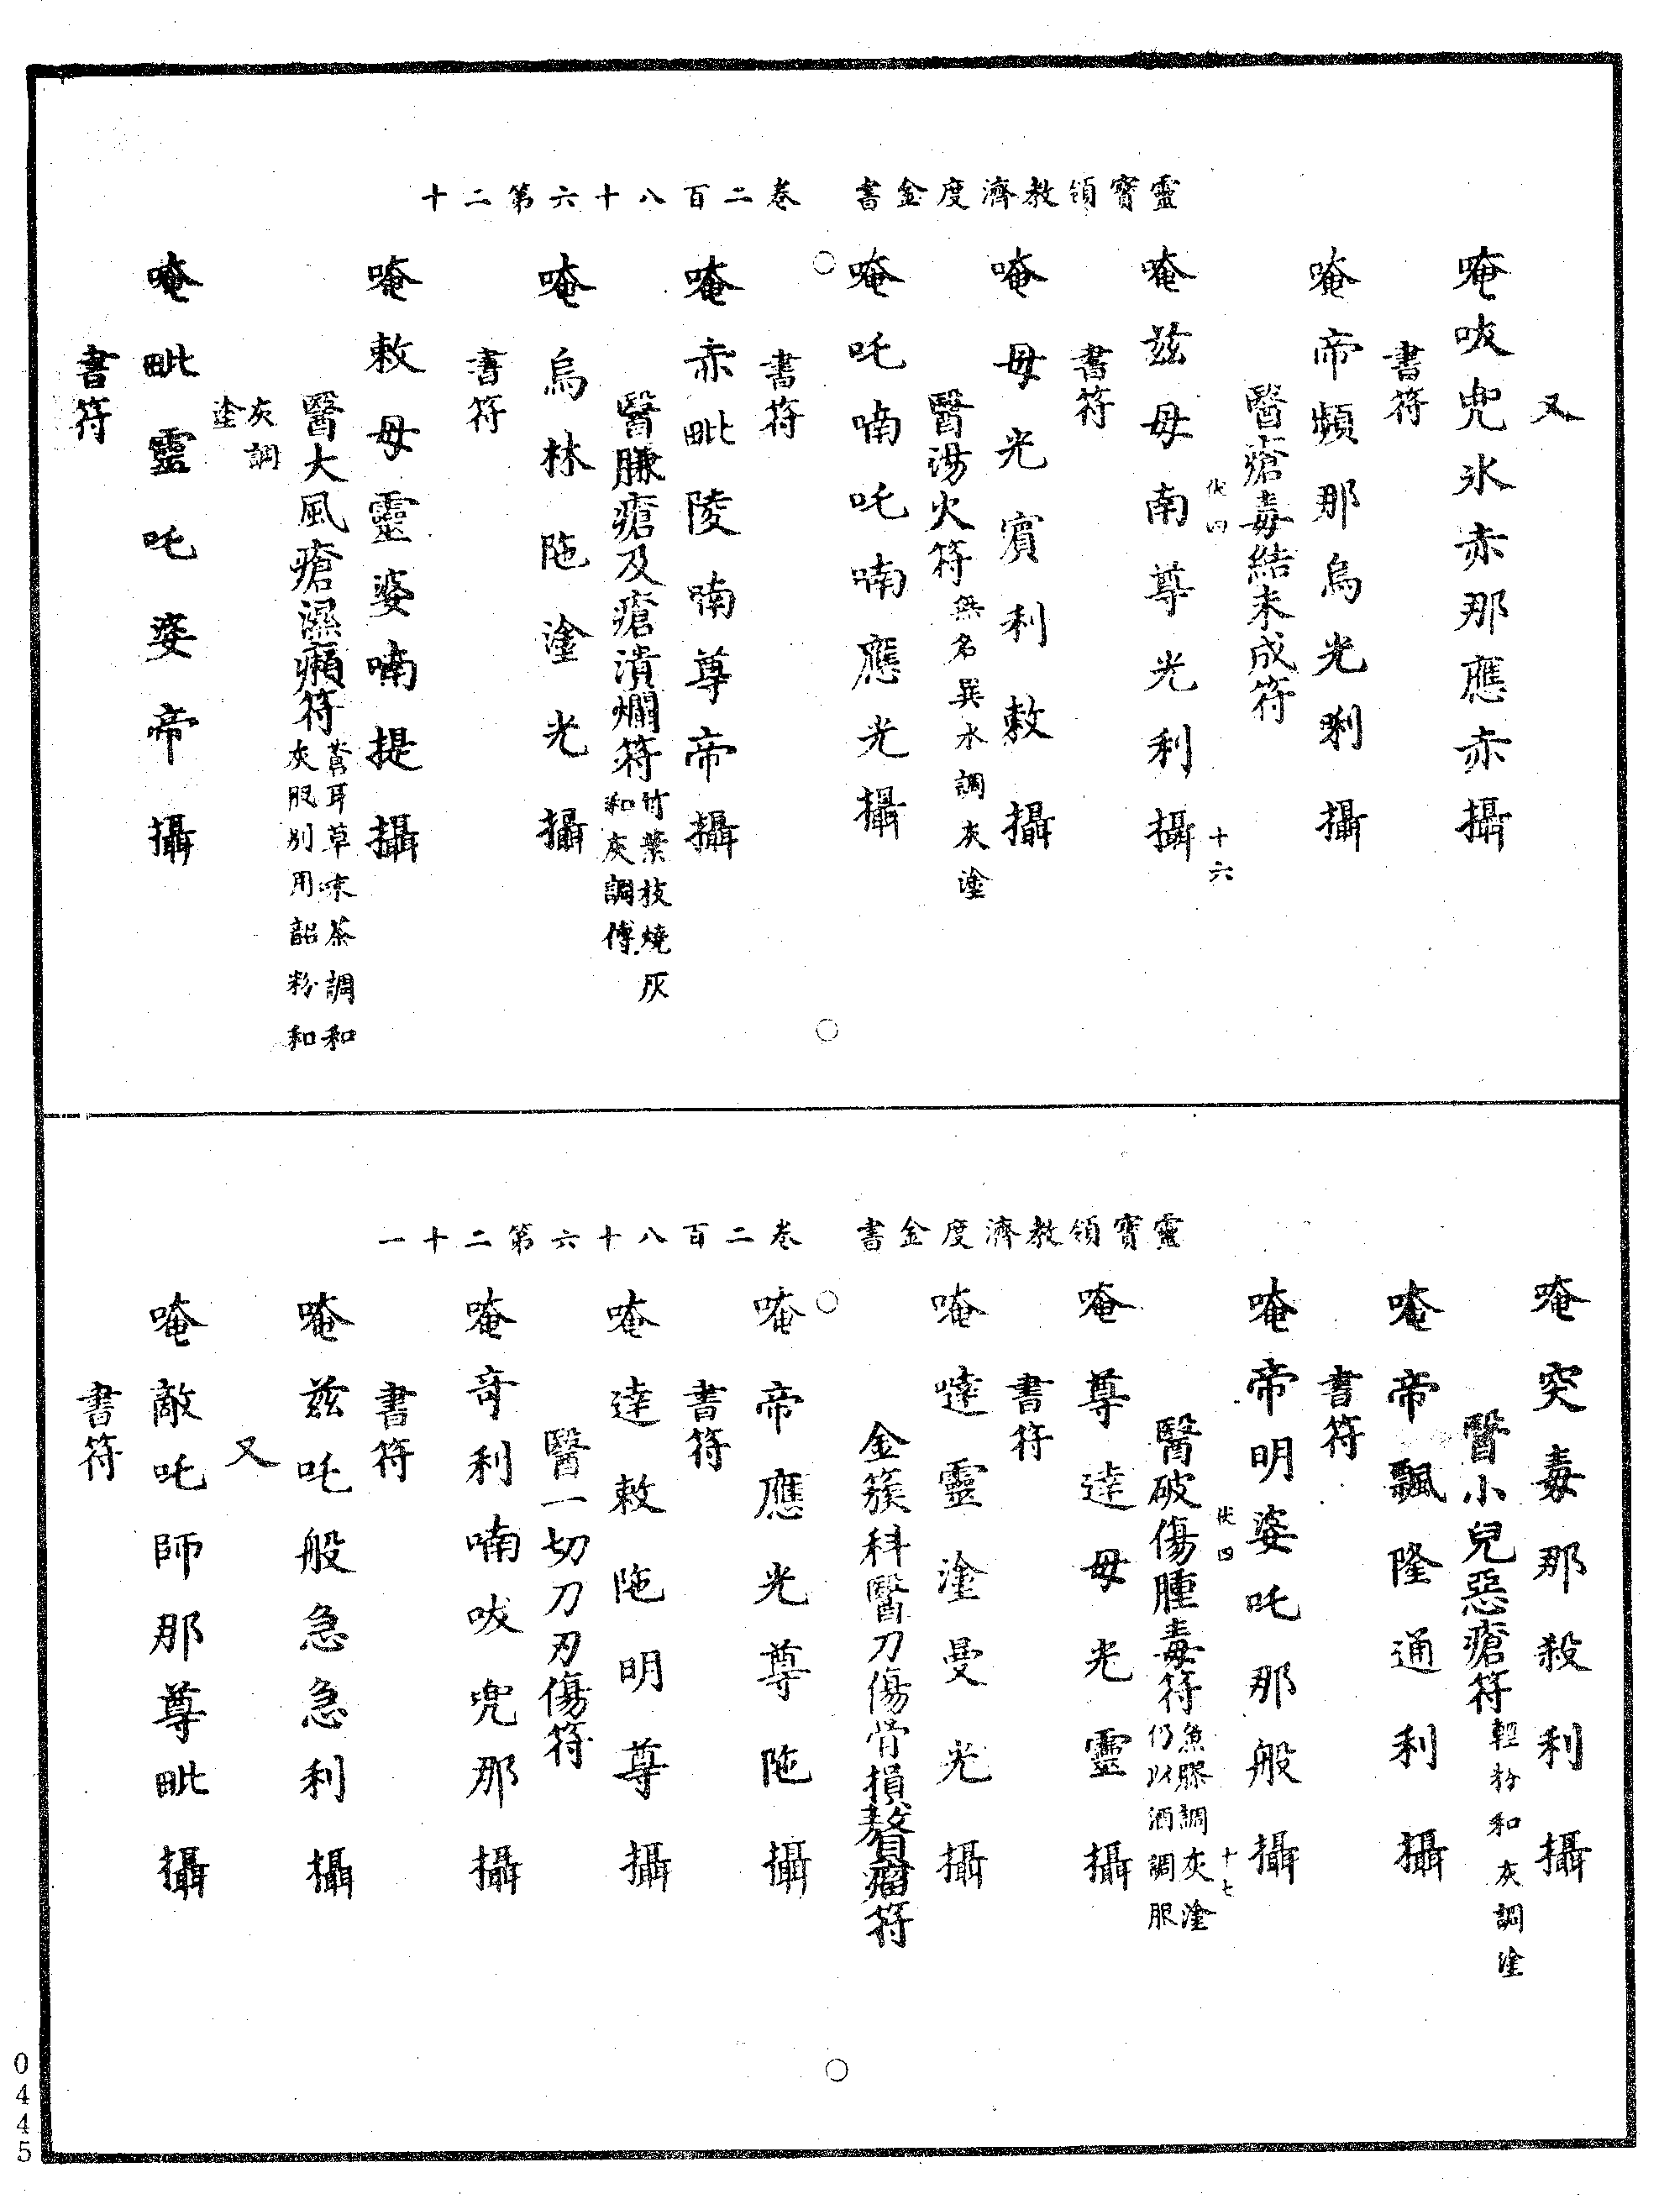 靈寶領教濟度金書　卷二百八十六第二十
又
唵吠兜氷赤那應赤攝
書符
唵帝頻那烏光唎攝
醫瘡毒結未成符
伏四　十六
唵玆母南尊光利攝
書符
唵母光賓利敕攝
醫湯火符無名異水調灰塗
唵吒喃吒喃應光攝
書符
唵赤毗陵喃尊帝攝
醫臁瘡及瘡潰爛符竹葉枝燒灰
和灰調傅
唵烏林陁塗光攝
書符
唵敕母靈婆喃提攝
醫大風瘡濕癩符蒼耳草末茶調和
灰服別用韶粉和
灰調
塗
唵毗靈吒婆帝攝
書符
靈寶領教濟度金書　卷二百八十六第二十一
唵突毒那殺利攝
醫小兒惡瘡符輕粉和灰調塗
唵帝飄隆通利攝
書符
唵帝明婆吒那般攝
伏四　十七
醫破傷腫毒符魚膠調灰塗
仍以酒調服
唵尊達母光靈攝
書符
唵噠靈塗曼光攝
金簇科醫刀傷骨損贅瘤符
唵帝應光尊陁攝
書符
唵達敕陁明尊攝
醫一切刀刃傷符
唵奇利喃吠兜那攝
書符
唵玆吒般急急利攝
又
唵敵吒師那尊毗攝
書符
0445